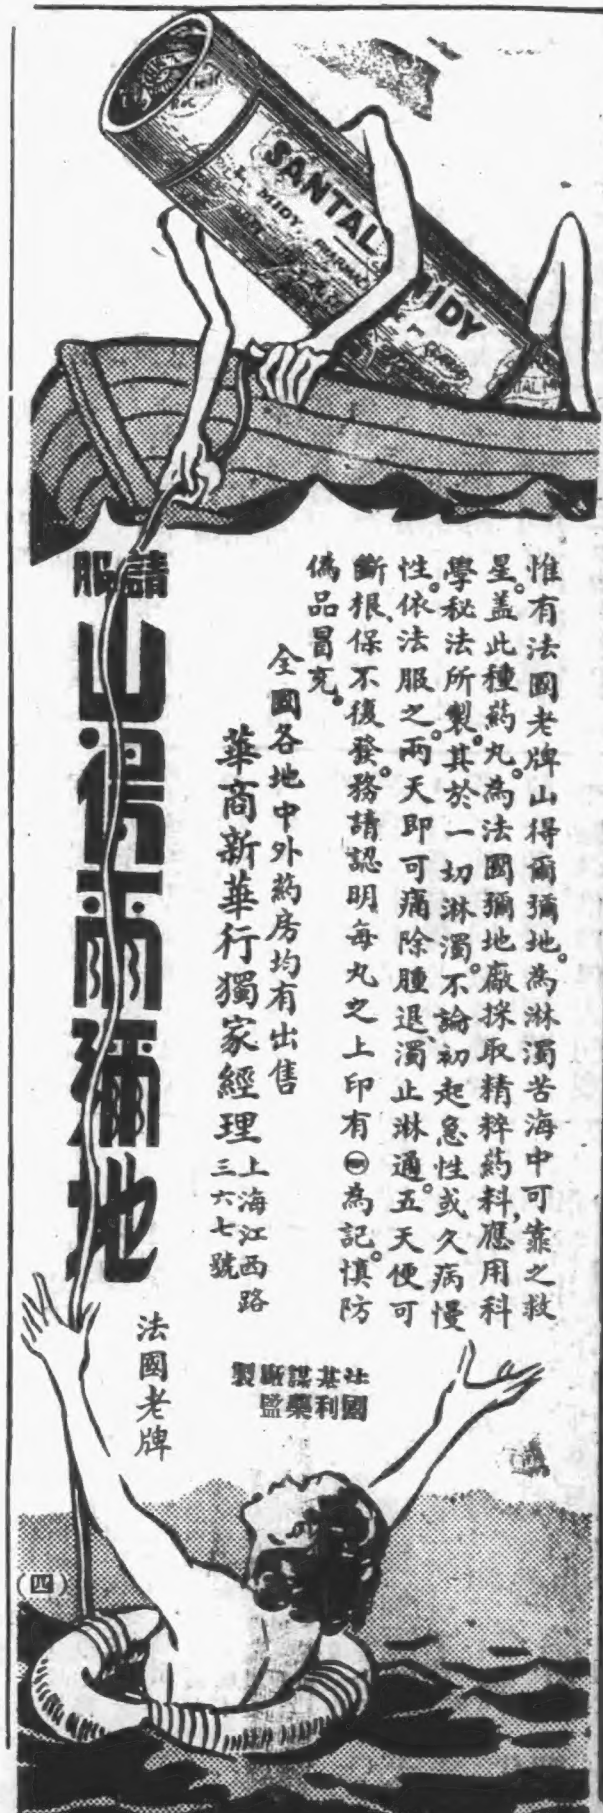 SANTAL MIDY
L. MIDY, PHARMAC
惟有法國老牌山得爾彌地。為淋濁苦海中可靠之救
星。蓋此種葯丸。為法國彌地廠採取精粹葯料，應用科
學秘法所製。其於一切淋濁。不論初起急性或久病慢
性。依法服之。兩天即可痛除腫退。濁止淋通。五天便可
斷根、保不復發。務請認明每丸之上印有 為記。慎防
偽品冒充。
全國各地中外葯房均有出售
華商新華行獨家經理
上海江西路
三六七號
請服
山得爾彌地
法國老牌
法國
基利
謀藥
廠監
製
(四)